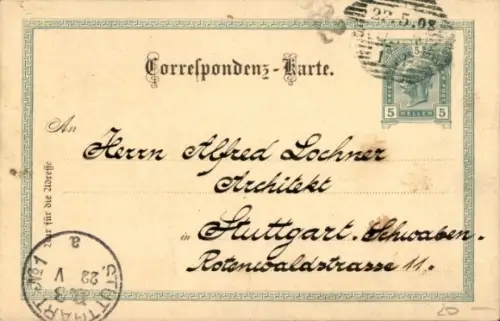 22.5.03
Correspondenz-Karte.
5 HELLER 5
An
Herrn Alfred Lochner
Architekt
in Stuttgart. Schwaben.
Rotenwaldstrasse 11.
Nur für die Adresse
STUTTGART No 1
23
V
a